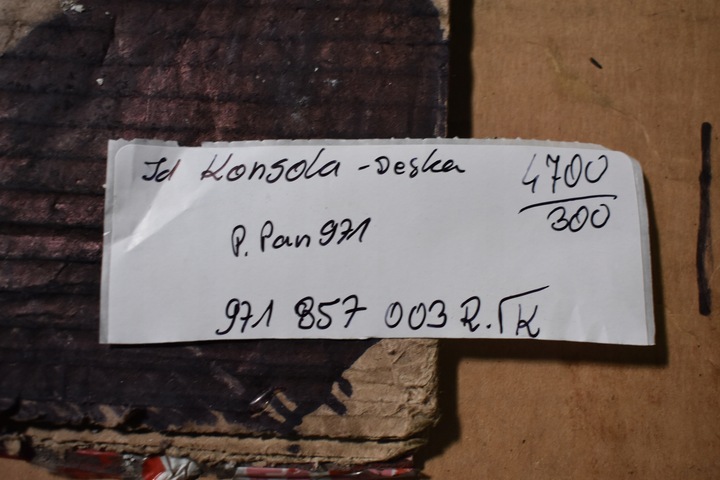 Jd Konsola - Deska 4700
300
P. Pan 971
971 857 003 R. ГK